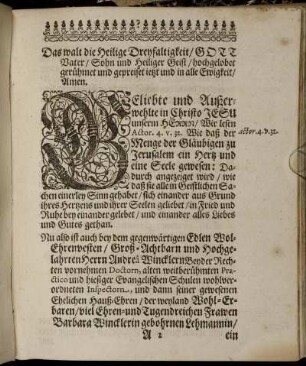 Das walt die Heilige Dreyfaltigkeit/ GOTT
Vater/ Sohn und Heiliger Geist/ hochgelobet
gerühmet und gepreiset ietzt und in alle Ewigkeit/
Amen.
GEliebte und Außer-
wehlte in Christo JESU
unserm HErrn/ Wir lesen
Actor. 4. v. 32. Wie daß der
Actor. 4. v. 32.
Menge der Gläubigen zu
Jerusalem ein Hertz und
eine Seele gewesen: Da-
durch angezeiget wird/ wie
daß sie alle in Geistlichen Sa-
chen einerley Sinn gehabet/ sich einander aus Grund
ihres Hertzens und ihrer Seelen geliebet/ in Fried und
Ruhe bey einander gelebet/ und einander alles Liebes
und Gutes gethan.
Nu also ist auch bey dem gegenwärtigen Edlen Wol-
Ehrenvesten/ Groß-Achtbarn und Hochge-
lahrten Herrn Andreä Wincklern Beyder Rech-
ten vornehmen Doctorn, alten weitberühmten Pra-
ctico und hiesiger Evangelischen Schulen wohlver-
ordneten Inspectorn, und dann seiner gewesenen
Ehelichen Hauß-Ehren/ der weyland Wohl-Er-
baren/ viel Ehren- und Tugendreichen Frawen
Barbara Wincklerin gebohrnen Lehmannin/
A 2 ein